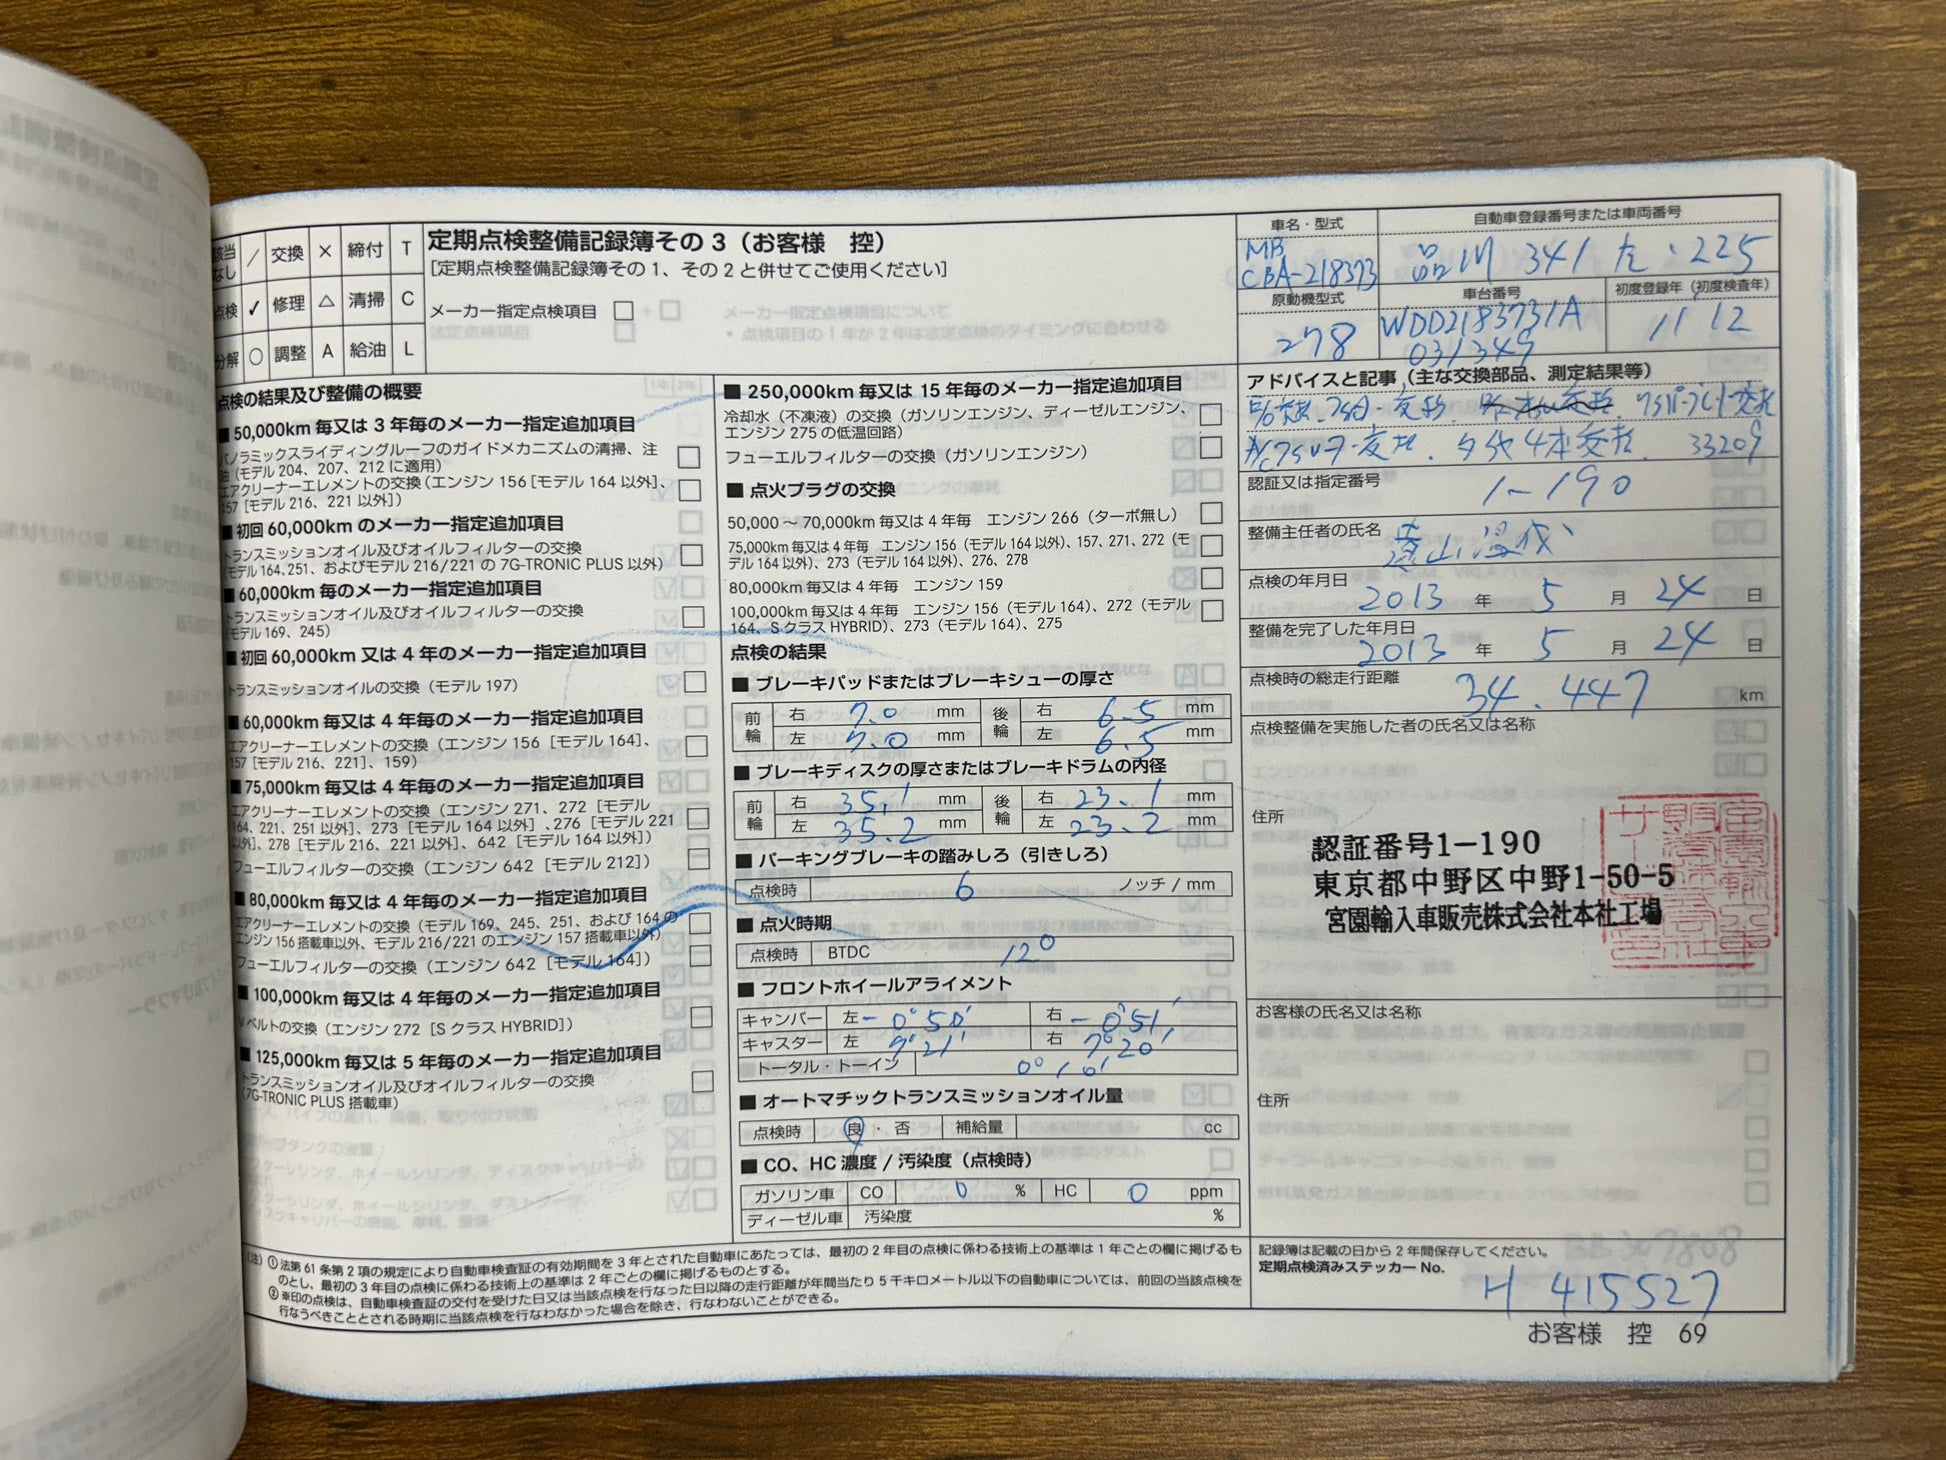 該当なし ／ 交換 × 締付 T
点検 ✓ 修理 △ 清掃 C
分解 ○ 調整 A 給油 L
定期点検整備記録簿その3（お客様　控）
［定期点検整備記録簿その1、その2と併せてご使用ください］
メーカー指定点検項目 □
点検の結果及び整備の概要
■ 50,000km 毎又は 3 年毎のメーカー指定追加項目
パノラミックスライディングルーフのガイドメカニズムの清掃、注
油（モデル 204、207、212 に適用）
エアクリーナーエレメントの交換（エンジン 156［モデル 164 以外］、
157［モデル 216、221 以外］）
■ 初回 60,000km のメーカー指定追加項目
トランスミッションオイル及びオイルフィルターの交換
（モデル 164、251、およびモデル 216/221 の 7G-TRONIC PLUS 以外）
■ 60,000km 毎のメーカー指定追加項目
トランスミッションオイル及びオイルフィルターの交換
（モデル 169、245）
■ 初回 60,000km 又は 4 年毎のメーカー指定追加項目
トランスミッションオイルの交換（モデル 197）
■ 60,000km 毎又は 4 年毎のメーカー指定追加項目
エアクリーナーエレメントの交換（エンジン 156［モデル 164］、
157［モデル 216、221］、159）
■ 75,000km 毎又は 4 年毎のメーカー指定追加項目
エアクリーナーエレメントの交換（エンジン 271、272［モデル
164、221、251 以外］、273［モデル 164 以外］、276［モデル 221
以外］、278［モデル 216、221 以外］、642［モデル 164 以外］）
フューエルフィルターの交換（エンジン 642［モデル 212］）
■ 80,000km 毎又は 4 年毎のメーカー指定追加項目
エアクリーナーエレメントの交換（モデル 169、245、251、および 164 の
エンジン 156 搭載車以外、モデル 216/221 のエンジン 157 搭載車以外）
フューエルフィルターの交換（エンジン 642［モデル 164］）
■ 100,000km 毎又は 4 年毎のメーカー指定追加項目
V ベルトの交換（エンジン 272［S クラス HYBRID］）
■ 125,000km 毎又は 5 年毎のメーカー指定追加項目
トランスミッションオイル及びオイルフィルターの交換
（7G-TRONIC PLUS 搭載車）
■ 250,000km 毎又は 15 年毎のメーカー指定追加項目
冷却水（不凍液）の交換（ガソリンエンジン、ディーゼルエンジン、
エンジン 275 の低温回路）
フューエルフィルターの交換（ガソリンエンジン）
■ 点火プラグの交換
50,000 ～ 70,000km 毎又は 4 年毎　エンジン 266（ターボ無し）
75,000km 毎又は 4 年毎　エンジン 156（モデル 164 以外）、157、271、272（モ
デル 164 以外）、273（モデル 164 以外）、276、278
80,000km 毎又は 4 年毎　エンジン 159
100,000km 毎又は 4 年毎　エンジン 156（モデル 164）、272（モデル
164、S クラス HYBRID）、273（モデル 164）、275
点検の結果
■ ブレーキパッドまたはブレーキシューの厚さ
前輪 右 7.0 mm 後輪 右 6.5 mm
左 7.0 mm 左 6.5 mm
■ ブレーキディスクの厚さまたはブレーキドラムの内径
前輪 右 35.1 mm 後輪 右 23.1 mm
左 35.2 mm 左 23.2 mm
■ パーキングブレーキの踏みしろ（引きしろ）
点検時 6 ノッチ / mm
■ 点火時期
点検時 BTDC 12°
■ フロントホイールアライメント
キャンバー 左 -0°50′ 右 -0°51′
キャスター 左 7°21′ 右 7°20′
トータル・トーイン 0°10′
■ オートマチックトランスミッションオイル量
点検時 良・否 補給量 cc
■ CO、HC 濃度 / 汚染度（点検時）
ガソリン車 CO 0 % HC 0 ppm
ディーゼル車 汚染度 %
（注）① 法第 61 条第 2 項の規定により自動車検査証の有効期間を 3 年とされた自動車にあたっては、最初の 2 年目の点検に係わる技術上の基準は 1 年ごとの欄に掲げるも
のとし、最初の 3 年目の点検に係わる技術上の基準は 2 年ごとの欄に掲げるものとする。
② ※印の点検は、自動車検査証の交付を受けた日又は当該点検を行なった日以降の走行距離が年間当たり 5 千キロメートル以下の自動車については、前回の当該点検を
行なうべきこととされる時期に当該点検を行なわなかった場合を除き、行なわないことができる。
車名・型式
MB
CBA-218373
自動車登録番号または車両番号
品川 341 た・225
原動機型式
278
車台番号
WDD2183731A
031349
初度登録年（初度検査年）
11 12
アドバイスと記事（主な交換部品、測定結果等）
タイヤ4本交換. 33209
認証又は指定番号
1-190
整備主任者の氏名
点検の年月日
2013 年 5 月 24 日
整備を完了した年月日
2013 年 5 月 24 日
点検時の総走行距離
34.447 km
点検整備を実施した者の氏名又は名称
住所
認証番号1-190
東京都中野区中野1-50-5
宮園輸入車販売株式会社本社工場
お客様の氏名又は名称
住所
記録簿は記載の日から 2 年間保存してください。
定期点検済みステッカー No.
H 415527
お客様　控　69